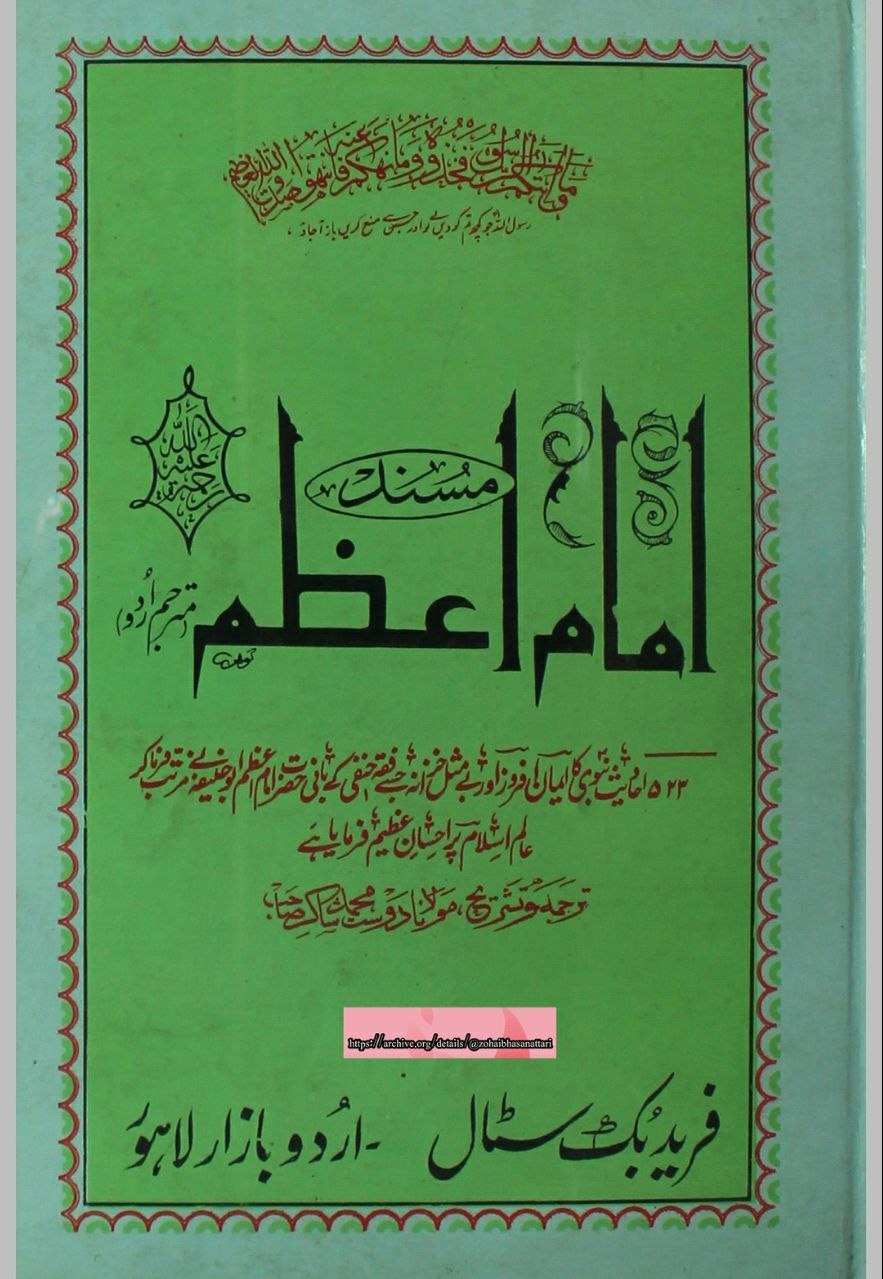 وما اتكم الرسول فخذوه وما نهكم عنه فانتهوا صدق الله العظيم
رسول اللہ جو کچھ تم کو دیں لے لو اور جس سے منع کریں باز آجاؤ،
مُسند
امام اعظم
رحمة الله عليه
(مترجم اُردو)
۵۲۳ احادیث نبوی کا ایمان افروز اور بے مثل خزانہ جسے فقہ حنفی کے بانی حضرت امام اعظم ابو حنیفہ نے مرتب فرما کر
عالم اسلام پر احسان عظیم فرمایا ہے
ترجمہ و تشریح، مولانا دوست محمد شاکر صاحب
https://archive.org/details/@zohaibhasanattari
فرید بُک سٹال ۔ اُردو بازار لاہور